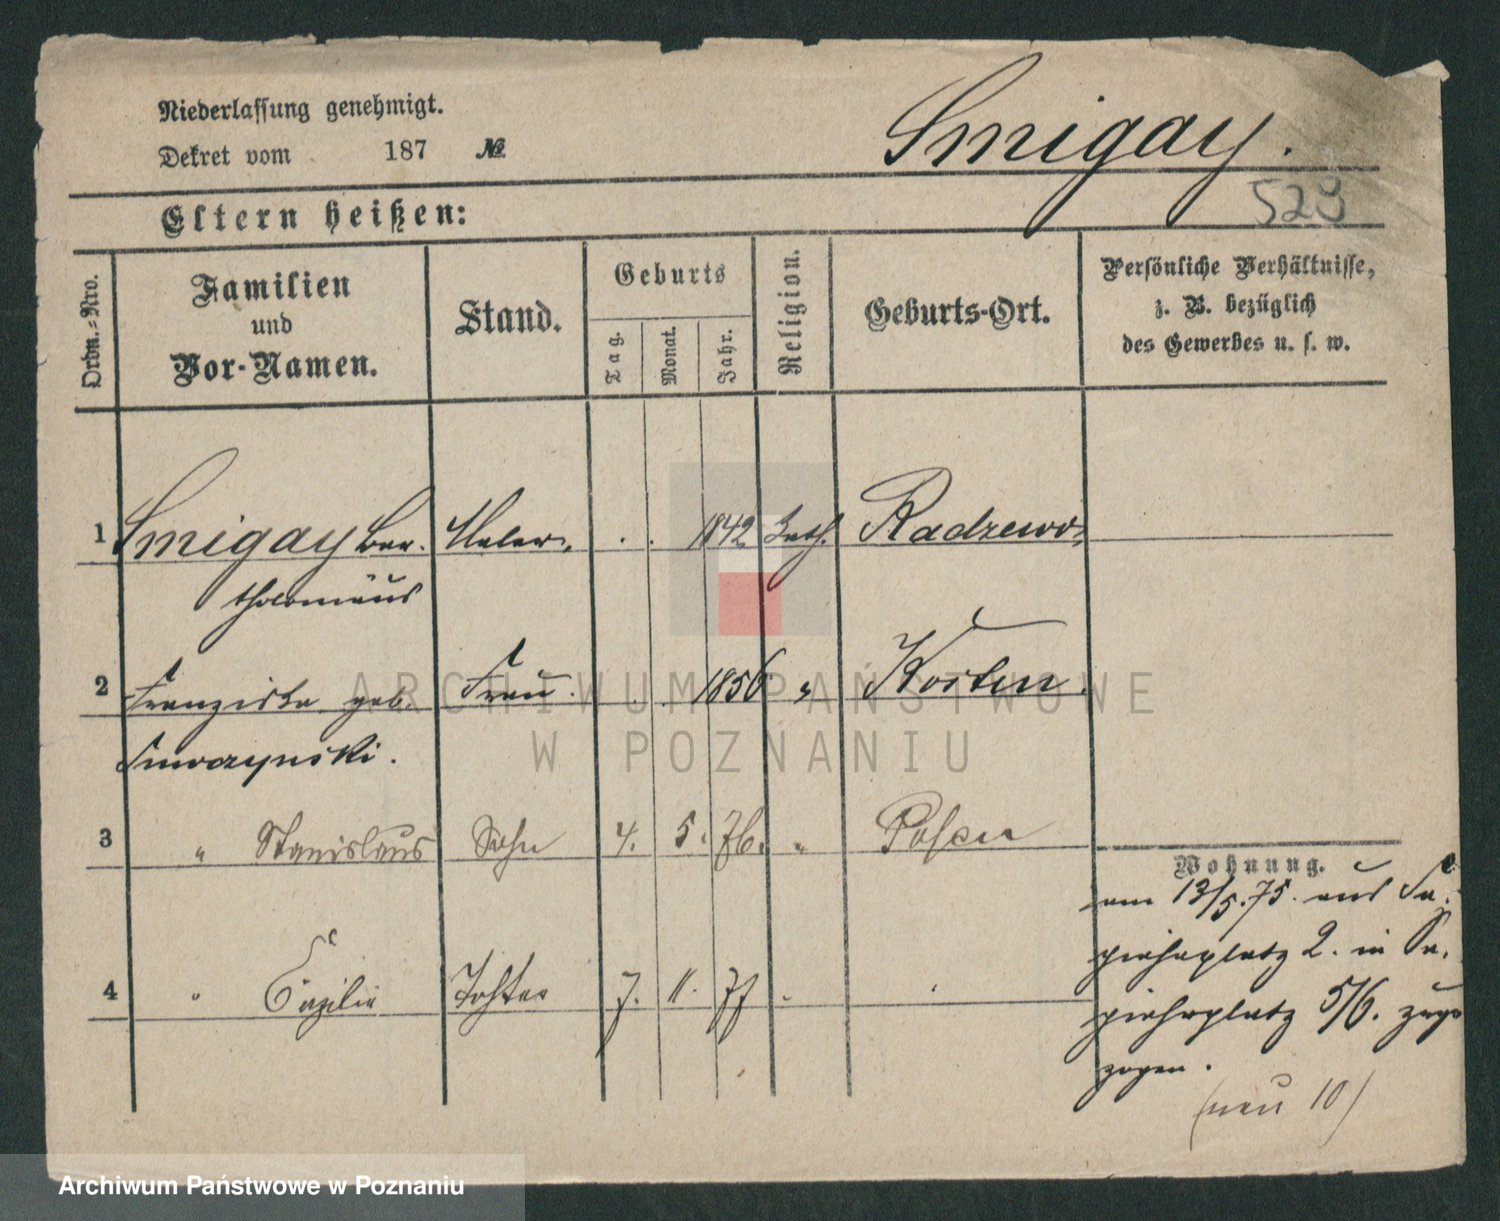 Niederlassung genehmigt.
Dekret vom 187 №
Smigay.
523
Eltern heißen:
Ordn.-Nro.
Familien
und
Vor-Namen.
Stand.
Geburts
Tag.
Monat.
Jahr.
Religion.
Geburts-Ort.
Persönliche Verhältnisse,
z. B. bezüglich
des Gewerbes u. s. w.
1 Smigay Bar- Maler. . . 1842 Kath. Radzewo
tholomäus
2 Franziska geb. Frau. . 1856 " Kosten.
3 " Stanislaus Sohn 4. 5. 76. " Posen
4 " Cäzilie Tochter 7. 11. 77 " "
Wohnung.
am 13/5.75. aus Sa-
piehaplatz 2. in Sa-
piehaplatz 5/6. zuge-
zogen.
(neu 10)
ARCHIWUM PAŃSTWOWE
W POZNANIU
Archiwum Państwowe w Poznaniu